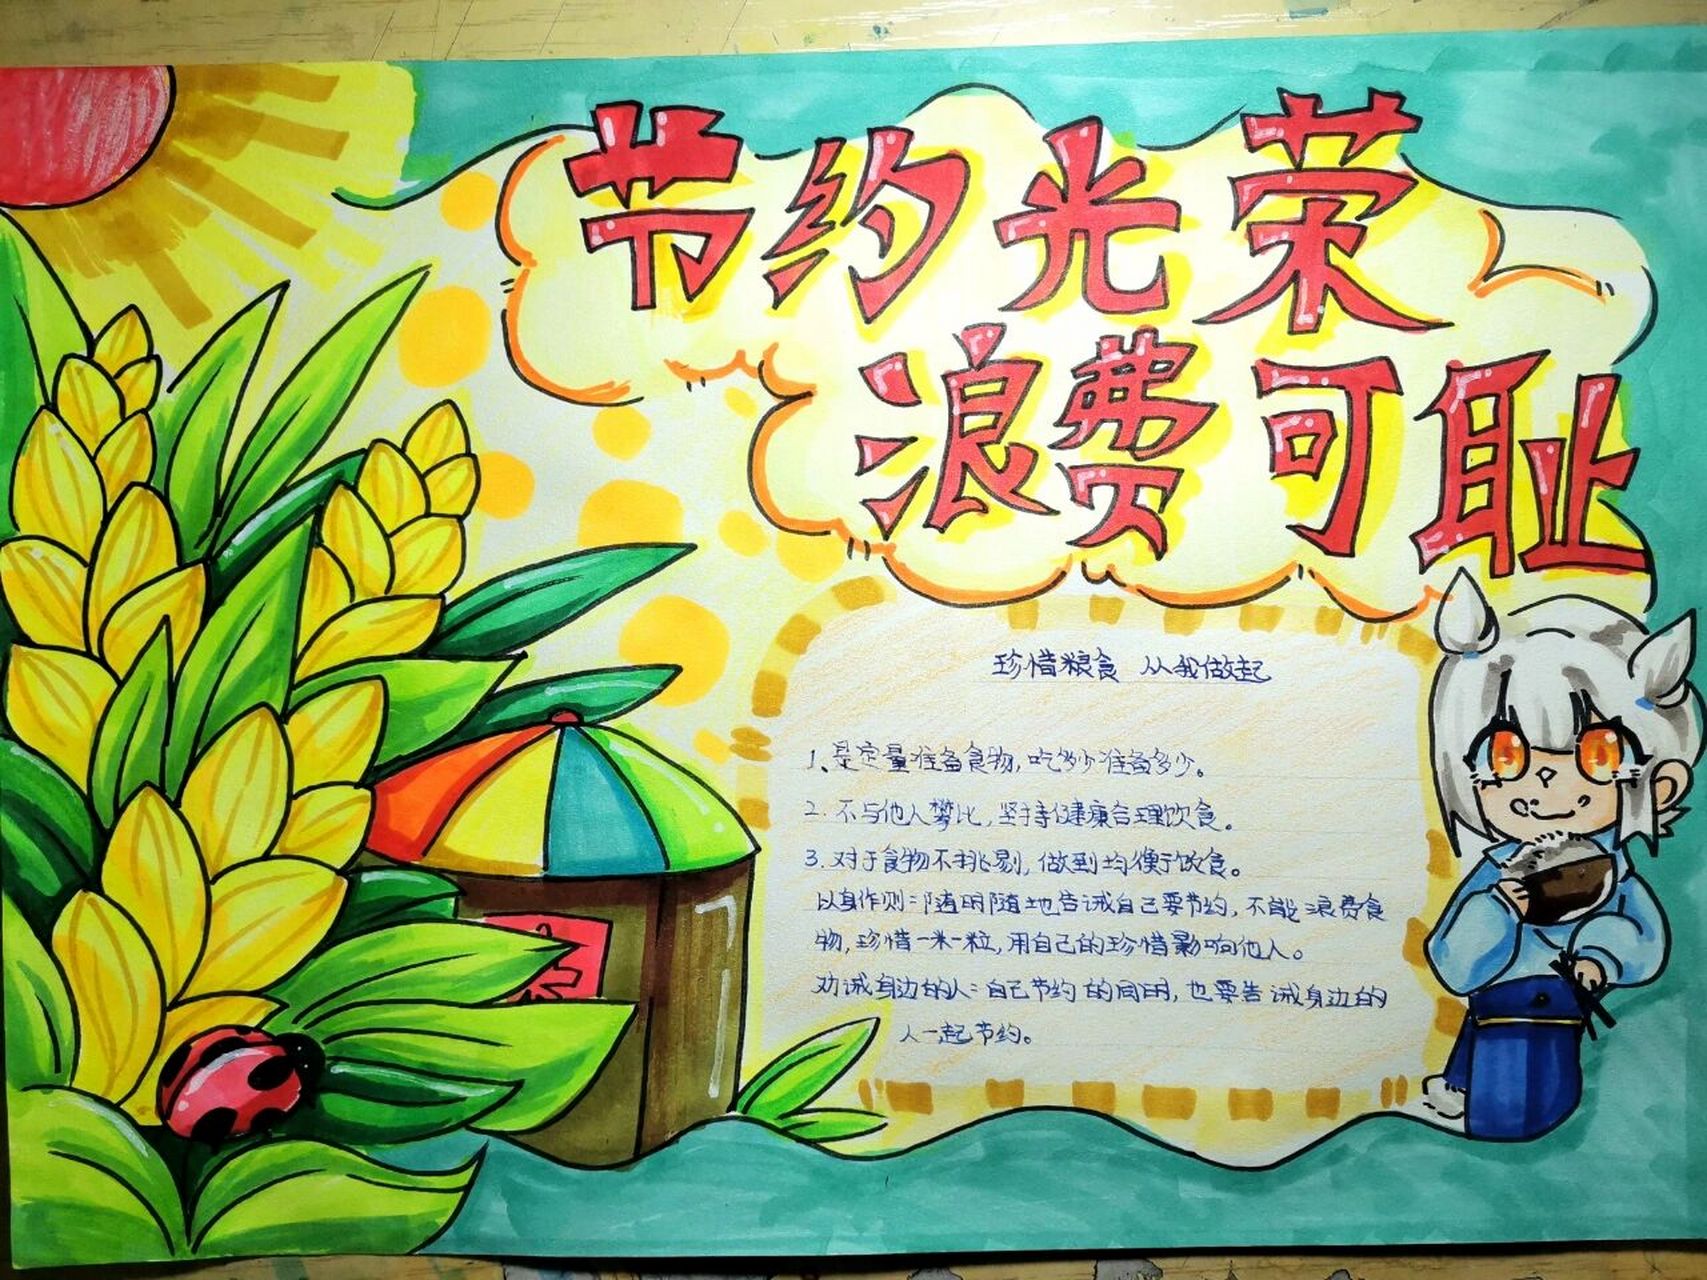 节约光荣
浪费可耻
珍惜粮食 从我做起
1、是定量准备食物,吃多少准备多少。
2.不与他人攀比,坚持健康合理饮食。
3.对于食物不挑剔,做到均衡饮食。
以身作则:随时随地告诫自己要节约,不能浪费食
物,珍惜一米一粒,用自己的珍惜影响他人。
劝诫身边的人:自己节约的同时,也要告诫身边的
人一起节约。